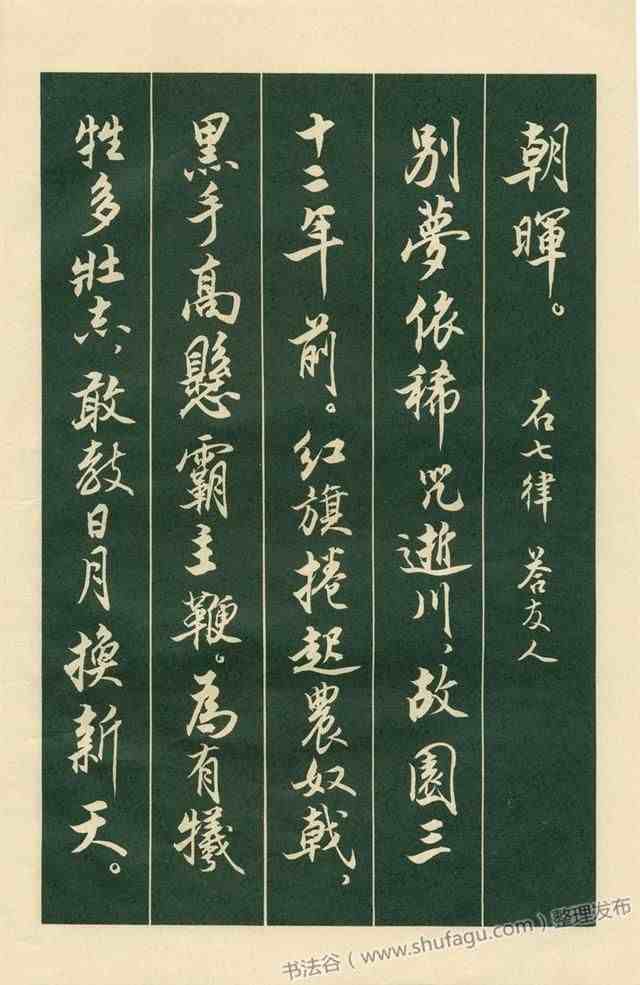 朝暉。 右七律 答友人
别夢依稀咒逝川，故園三
十二年前。红旗捲起農奴戟，
黑手高懸霸主鞭。為有犧
牲多壯志，敢教日月換新天。
书法谷（www.shufagu.com）整理发布